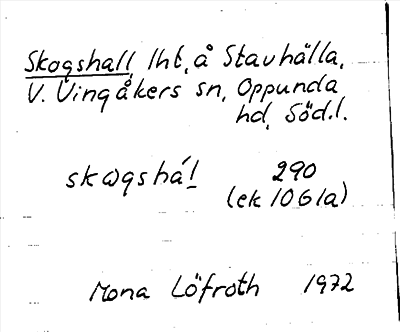 Skogshall, lht, å Stavhälla,
V. Vingåkers sn, Oppunda
hd, Söd.l.
skωgshál̲ 290
(ek 1061a)
Mona Löfroth 1972